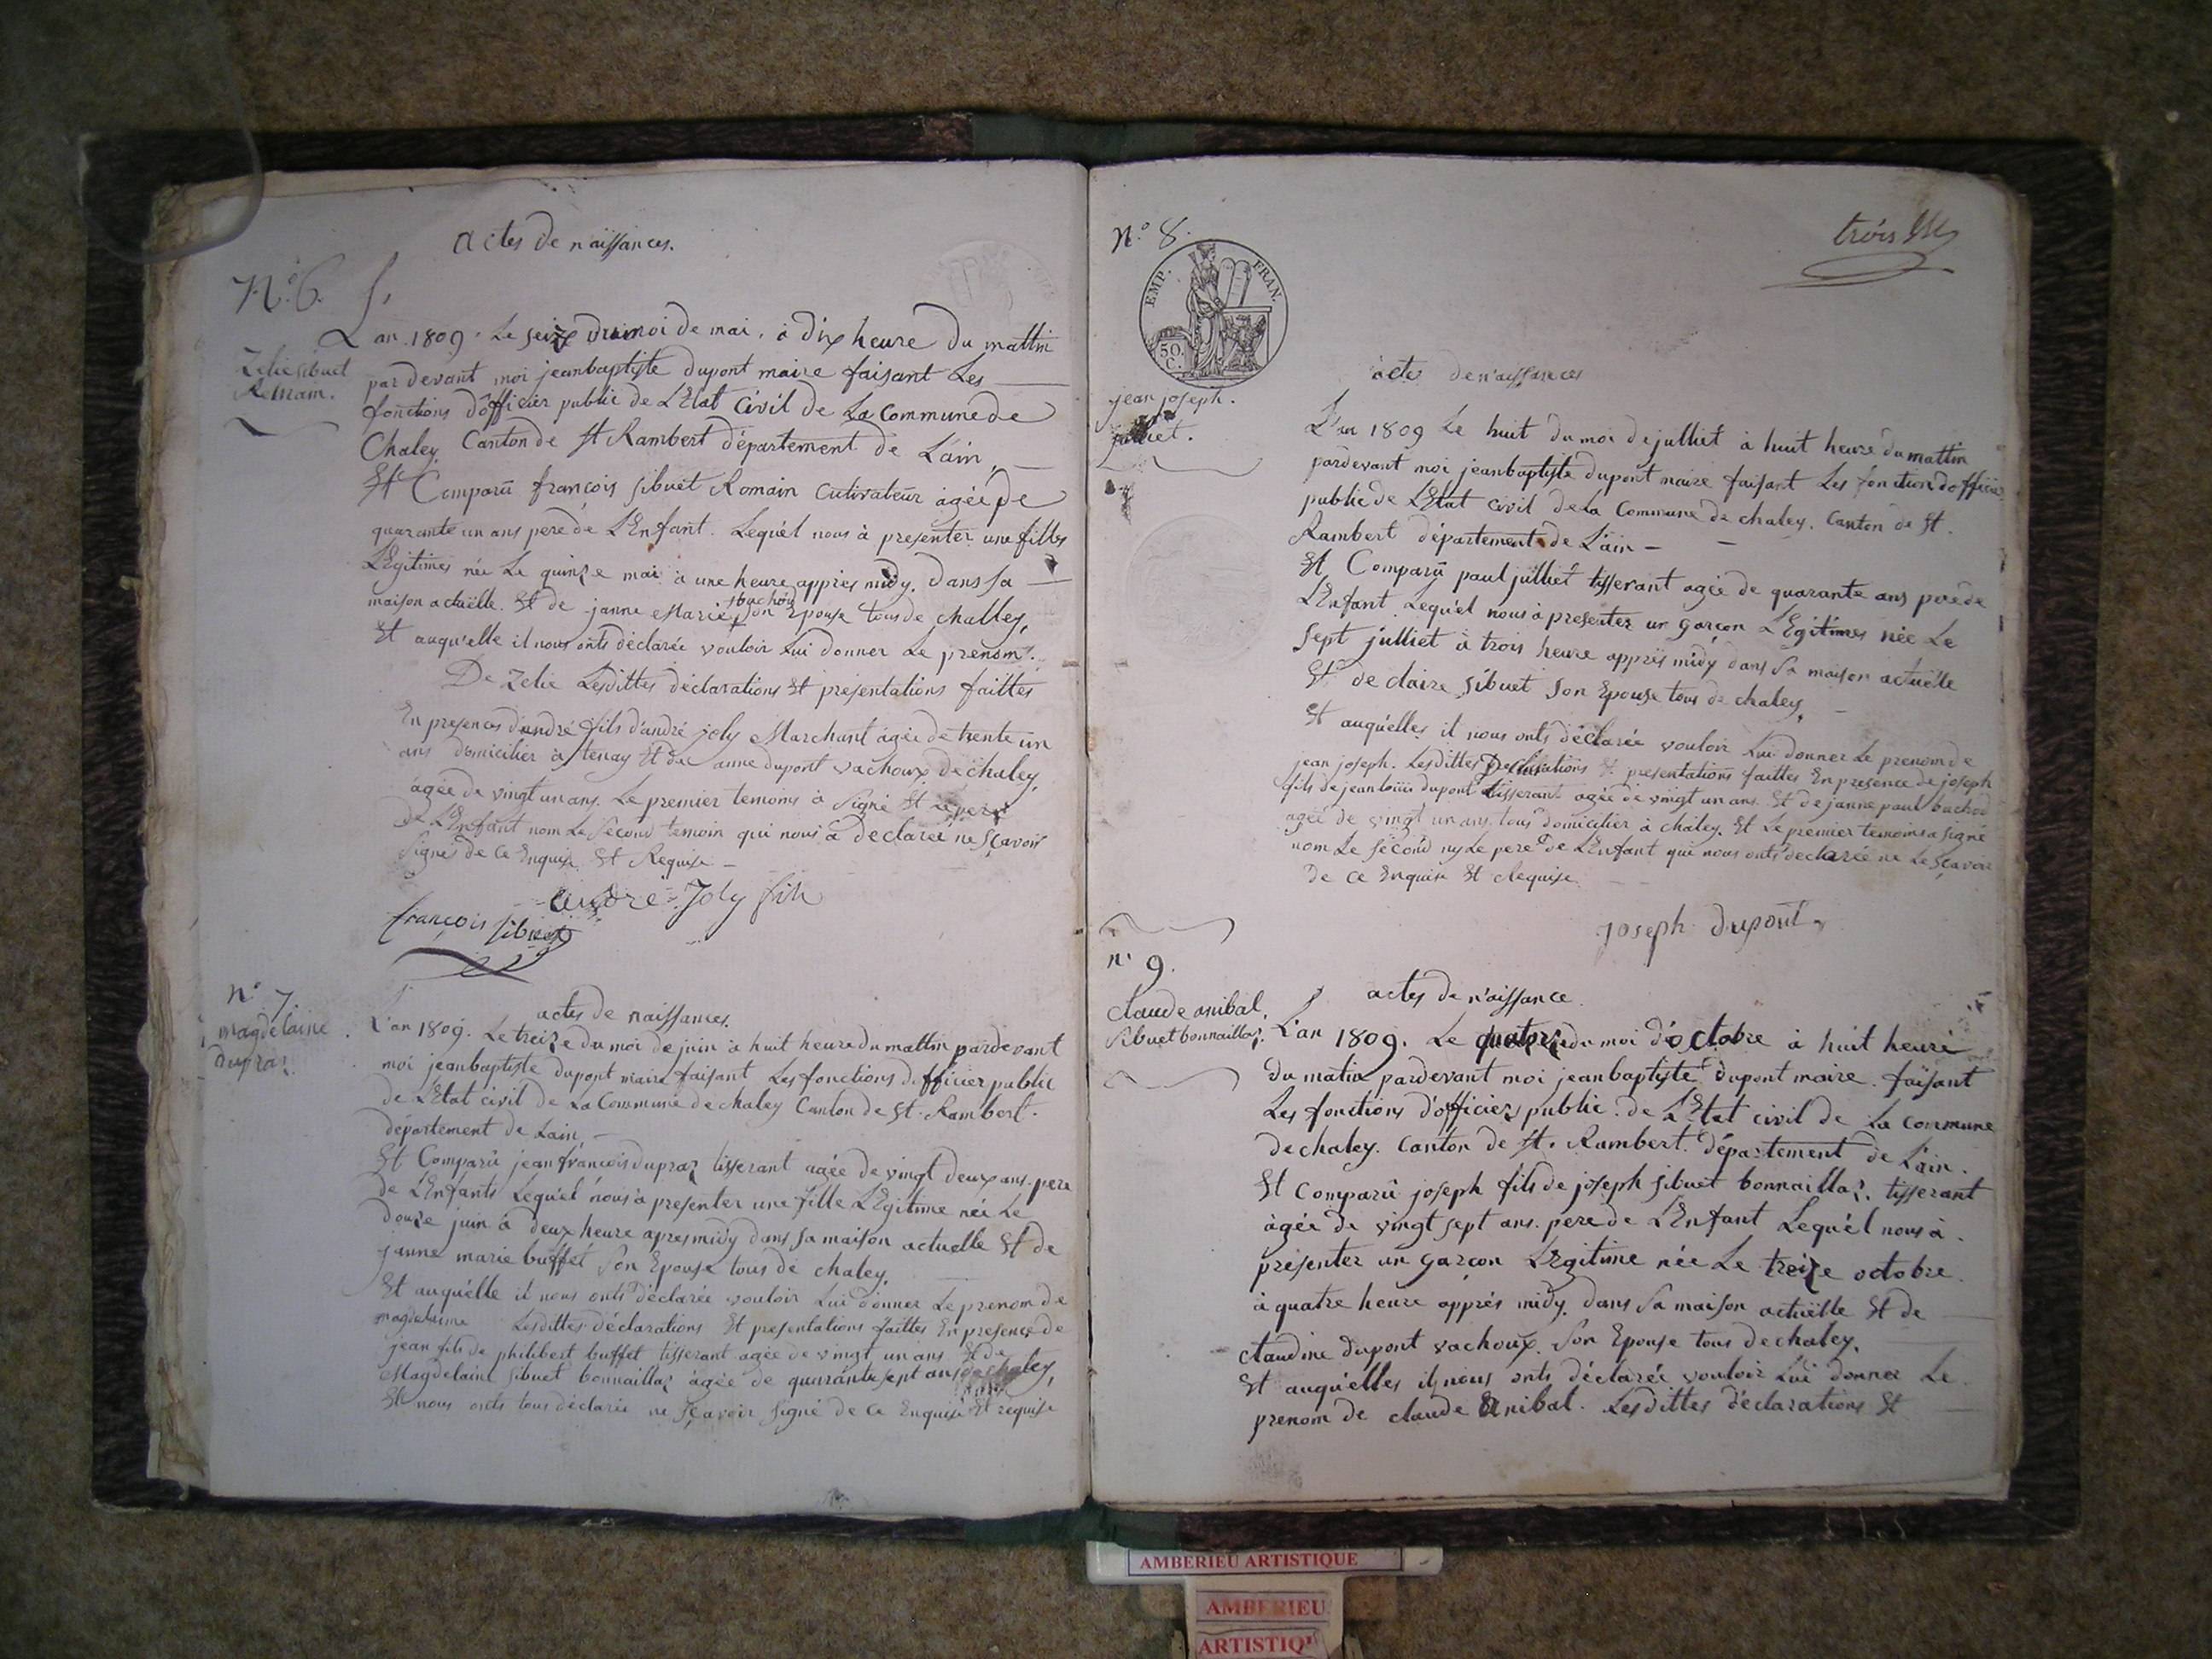 actes de naissances.
N.o 6.
Zelie sibuet
Romain.
L an 1809. Le seize du moi de mai, à dix heure du mattin
par devant moi jeanbaptiste dupont maire faisant Les
fonctions d'officier public de L'Etat Civil de La Commune de
Chaley Canton de St Rambert département de L'ain,
Et Comparû francois sibuet Romain cutivateur agée de
quarante un ans pere de L'Enfant. Lequel nous à presenter une filles
LEgitimes née Le quinze mai à une heure appries midy. Dans sa
maison actuëlle. Et de janne Marie bachod son Epouse tous de challey,
Et auqu'elle il nous onts déclarée vouloir Lui donner Le prenom.
De Zelie Lesdittes déclarations Et présentations faittes
En presences d'andré fils d'andré joly Marchant agée de trente un
ans domicilier à tenay Et de anne dupont vachoux de chaley,
agée de vingt un ans. Le premier temoins à Signé Et Le pere
de L'Enfant nom Le Second temoin qui nous à declarée ne sçavoir
Signés de Ce Enquise Et Requise
andre Joly fils
françois sibuet
n.o 7.
magdelaine
dupraz.
actes de naissances.
L'an 1809. Le treize du moi de juin à huit heure du mattin pardevant
moi jeanbaptiste dupont maire faisant Les fonctions d'officier public
de L'Etat civil de La Commune de chaley Canton de St. Rambert.
département de Lain,
Et Comparû jean françois dupraz tisserant agée de vingt deux ans. pere
de L'Enfants Lequ'el nous à presenter une fille LEgitime née Le
douze juin à deux heure apres midy dans sa maison actuelle Et de
janne marie buffet Son Epouse tous de chaley,
Et auqu'elle il nous onts déclarée vouloir Lui donner Le prenom de
magdelaine Lesdittes déclarations Et presentations faittes En presence de
jean fils de philibert buffet tisserant agée de vingt un ans Et de
Magdelaine sibuet bonnaillaz agée de quarante sept ans de chaley,
Et nous onts tous déclarée ne sçavoir signé de Ce Enquise Et requise
N.o 8.
trois
EMP. FRAN.
50. C.
jean joseph.
julliet.
actes de naissances
L'an 1809 Le huit du moi de julliet à huit heure du mattin
pardevant moi jeanbaptiste dupont maire faisant Les fonction d'officier
public de L'Etat civil de La Commune de chaley. Canton de St.
Rambert département de L'ain
Et Comparû paul julliet tisserant agée de quarante ans pere de
L'Enfant Lequ'el nous à presenter un garçon LEgitimes née Le
sept julliet à trois heure apprës midy dans Sa maison actuëlle
Et de claire sibuet son Epouse tous de chaley,
Et auqu'elles il nous onts déclarée vouloir Lui donner Le prenom de
jean joseph. Lesdittes Declarations Et presentations faittes En presence de joseph
fils de jean louis dupont tisserant agée de vingt un ans. Et de janne paul bachod
agée de vingt un ans, tous domicilier à chaley. Et Le premier temoins a signé
nom Le Sécond ny Le pere de L'Enfant qui nous onts declarée ne Le sçavoir
de Ce Enquise Et Requise
joseph dupont
n.o 9.
claude anibal.
sibuet bonnaillaz.
actes de n'aissance.
L'an 1809. Le quatorze du moi d'octobre à huit heure
du matin pardevant moi jeanbaptiste dupont maire faisant
Les fonctions d'officier public de L'Etat civil de La commune
de chaley. Canton de St. Rambert. département de L'ain.
Et Comparû joseph fils de joseph sibuet bonnaillaz. tisserant
agée de vingt sept ans. pere de L'Enfant Lequ'el nous à
présenter un garcon LEgitime née Le treize octobre
à quatre heure apprés midy. dans Sa maison actuëlle Et de
claudine dupont vachoux. Son Epouse tous de chaley,
Et auqu'elles il nous onts déclarée vouloir Lui donner Le
prenom de claude Anibal. Lesdittes déclarations Et
AMBERIEU ARTISTIQUE
AMBERIEU
ARTISTIQ